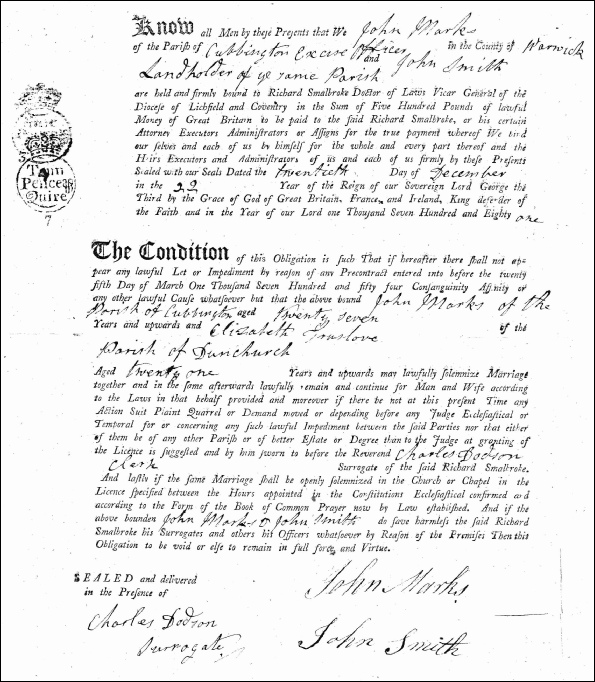 Know all Men by these Presents that We John Marks
of the Parish of Cubbington Excise Officer in the County of Warwick
and John Smith
Landholder of ye same Parish
are held and firmly bound to Richard Smalbroke Doctor of Laws Vicar General of the
Diocese of Lichfield and Coventry in the Sum of Five Hundred Pounds of lawful
Money of Great Britain to be paid to the said Richard Smalbroke, or his certain
Attorney Executors Administrators or Assigns for the true payment whereof We bind
our selves and each of us by himself for the whole and every part thereof and the
Heirs Executors and Administrators of us and each of us firmly by these Presents
Sealed with our Seals Dated the twentieth Day of December
in the 22 Year of the Reign of our Sovereign Lord George the
Third by the Grace of God of Great Britain, France, and Ireland, King defender of
the Faith and in the Year of our Lord one Thousand Seven Hundred and Eighty one
Pence
Quire
7
The Condition of this Obligation is such That if hereafter there shall not ap-
pear any lawful Let or Impediment by reason of any Precontract entered into before the twenty
fifth Day of March One Thousand Seven Hundred and fifty four Consanguinity Affinity or
any other lawful Cause whatsoever but that the above bound John Marks of the
Parish of Cubbington aged twenty seven
Years and upwards and Elizabeth Truslove of the
Parish of Dunchurch
Aged twenty one Years and upwards may lawfully solemnize Marriage
together and in the same afterwards lawfully remain and continue for Man and Wife according
to the Laws in that behalf provided and moreover if there be not at this present Time any
Action Suit Plaint Quarrel or Demand moved or depending before any Judge Ecclesiastical or
Temporal for or concerning any such lawful Impediment between the said Parties nor that either
of them be of any other Parish or of better Estate or Degree than to the Judge at granting of
the Licence is suggested and by him sworn to before the Reverend Charles Dodson
Clark Surrogate of the said Richard Smalbroke.
And lastly if the same Marriage shall be openly solemnized in the Church or Chapel in the
Licence specified between the Hours appointed in the Constitutions Ecclesiastical confirmed and
according to the Form of the Book of Common Prayer now by Law established. And if the
above bounden John Marks & John Smith do save harmless the said Richard
Smalbroke his Surrogates and others his Officers whatsoever by Reason of the Premises Then this
Obligation to be void or else to remain in full force, and Virtue.
SEALED and delivered
in the Presence of
John Marks
Charles Dodson
Surrogate
John Smith